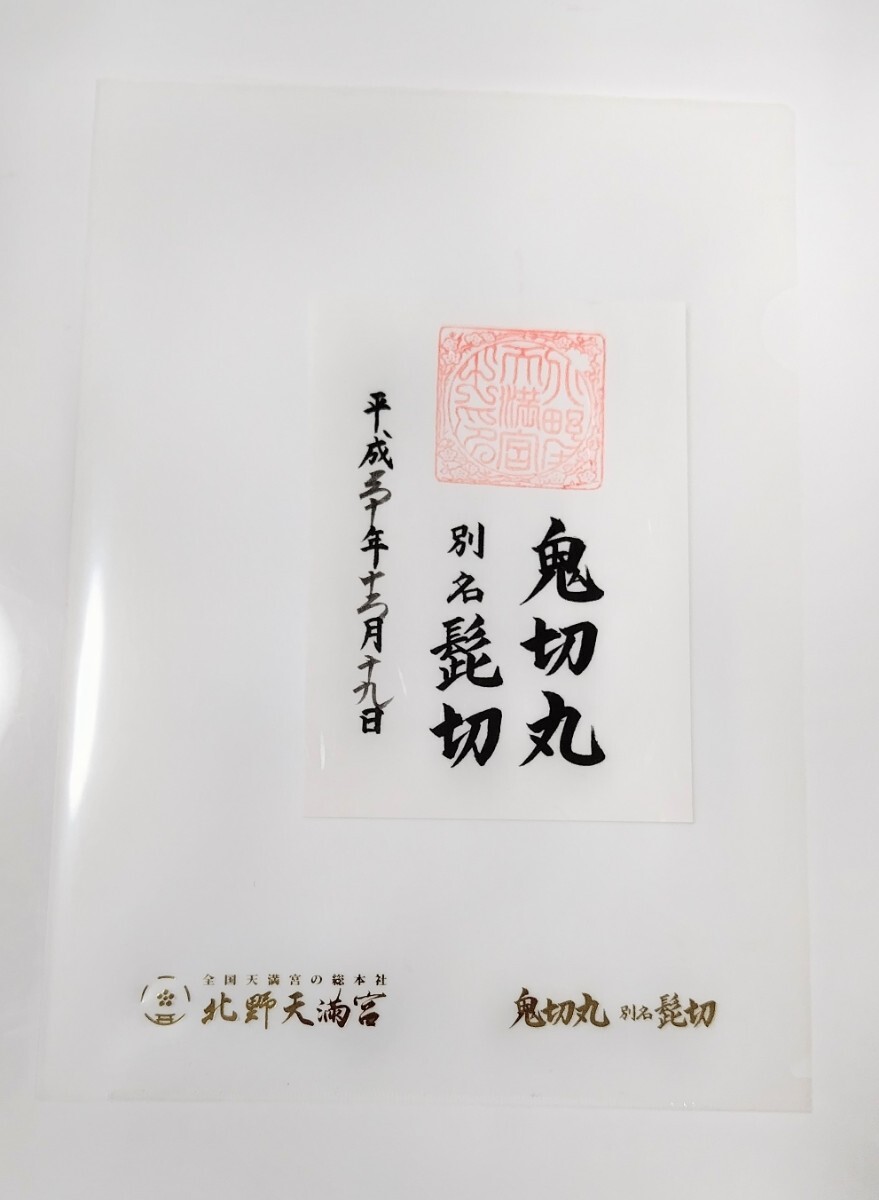 北野天満宮之印
鬼切丸
別名 髭切
平成三十年十二月十九日
全国天満宮の総本社
北野天満宮
鬼切丸 別名 髭切